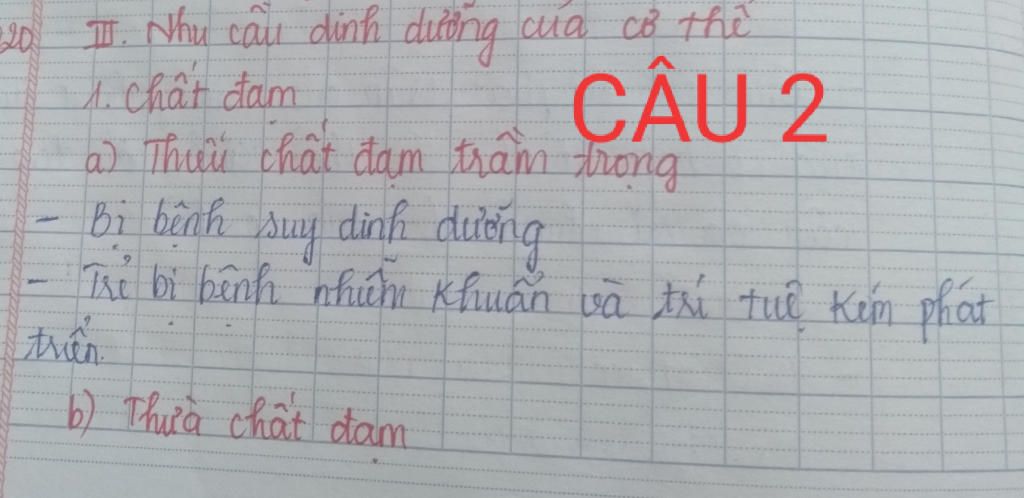 20 III. Nhu cầu dinh dưỡng của cơ thể
1. Chất đạm
CÂU 2
a) Thiếu chất đạm trầm trọng
- Bị bệnh suy dinh dưỡng
- Trẻ bị bệnh nhiễm khuẩn và trí tuệ kém phát
triển.
b) Thừa chất đạm